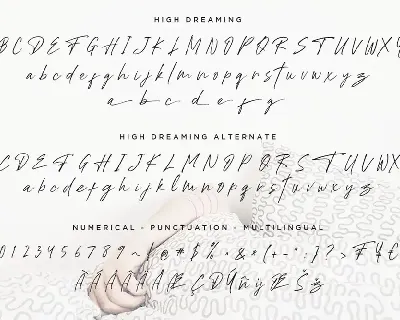 HIGH DREAMING
BCDEFGHIJKLMNOPQRSTUVWXY
abcdefghijklmnopqrstuvwxyz
abcdefg
HIGH DREAMING ALTERNATE
CDEFGHIJKLMNOPQRSTUVWX
abcdefghijklmnopqrstuvwxyz
NUMERICAL - PUNCTUATION - MULTILINGUAL
0123456789